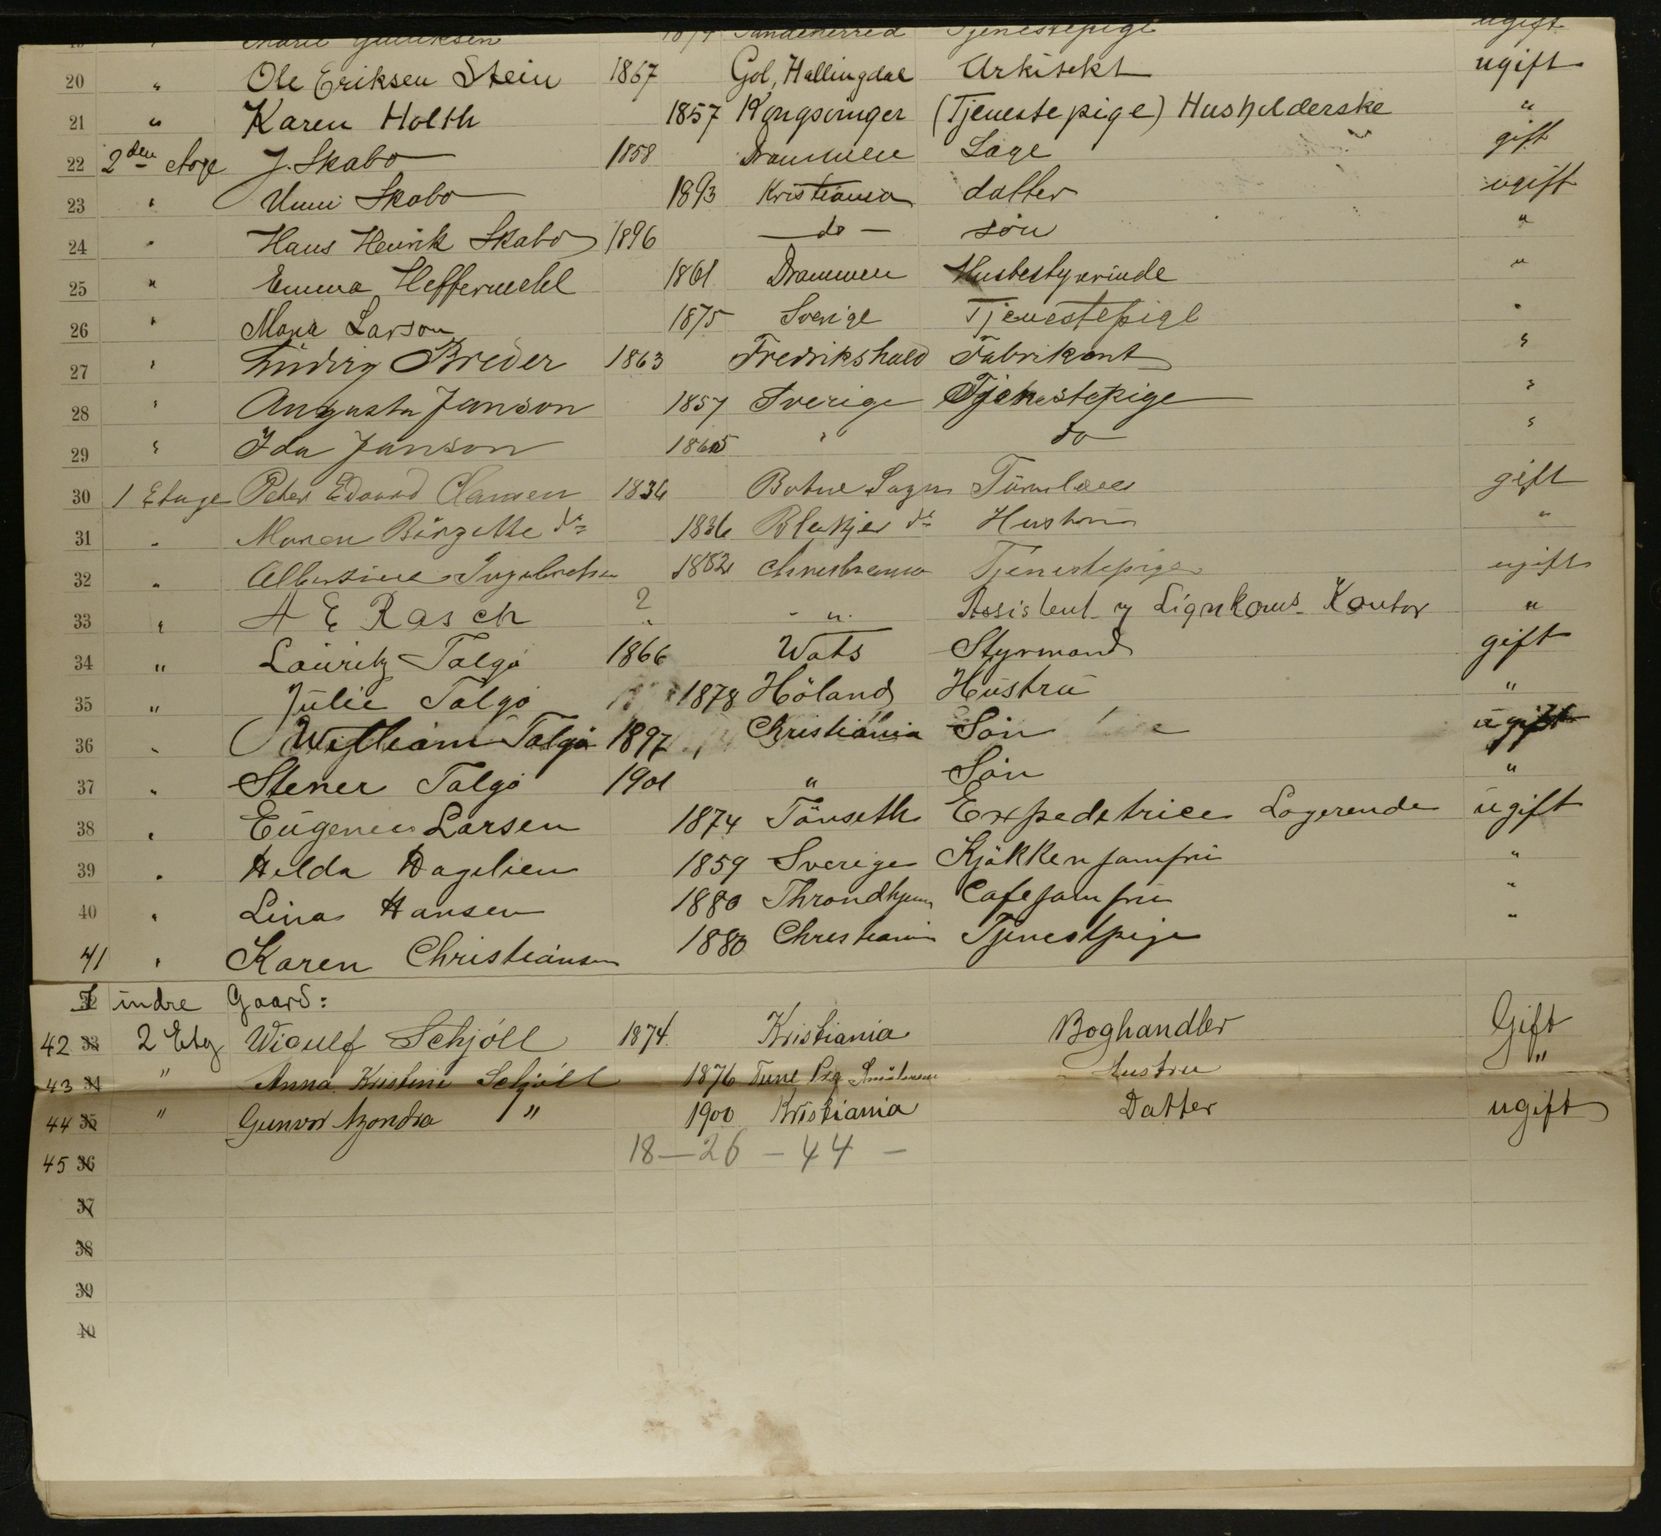 19 " Marie Gulliksen 1874 Sandeherred Tjenestepige ugift
20 " Ole Eriksen Stein 1867 Gol, Hallingdal Arkitekt ugift
21 " Karen Holth 1857 Kongsvinger (Tjenestepige) Husholderske "
22 2den Etage J. Skabo 1858 Drammen Læge gift
23 " Unni Skabo 1893 Kristiania datter ugift
24 " Hans Henrik Skabo 1896 — do — søn "
25 " Emma Heffermehl 1861 Drammen Husbestyrerinde "
26 " Maria Larson 1875 Sverige Tjenestepige "
27 " Ludvig Breder 1863 Fredrikshald Fabrikant "
28 " Augusta Janson 1857 Sverige Tjenestepige "
29 " Ida Janson 1865 " do "
30 1 Etage Peter Edvard 1836 Botne Sogn gift
31 " Maren Birgitte do 1836 do Hustru "
32 " Albertine 1882 Christiania Tjenestepige ugift
33 " A E Rasch ? " " Assistent Kontor "
34 " Lauritz Talgø 1866 Wats Styrmand gift
35 " Julie Talgø 1878 Höland Hüstrü "
36 " William Talgø 1897 Christiania Sön ugift
37 " Stener Talgø 1901 " Sön "
38 " Eugenie Larsen 1874 Tönseth Expeditrice Logerende ugift
39 " Hilda Dagelien 1859 Sverige Kjökkenjomfrü "
40 " Lina Hansen 1880 Throndhjem Cafejomfrü "
41 " Karen Christiansen 1880 Christiania Tjenestpige "
I indre Gaard:
42 33 2 Etg Wiculf Schjöll 1874. Kristiania Boghandler Gift
43 34 " Anna Kristine Schjöll 1876 Tune Hustru "
44 35 " Gunvor " 1900 Kristiania Datter ugift
45 36 18 — 26 — 44 —
37
38
39
40